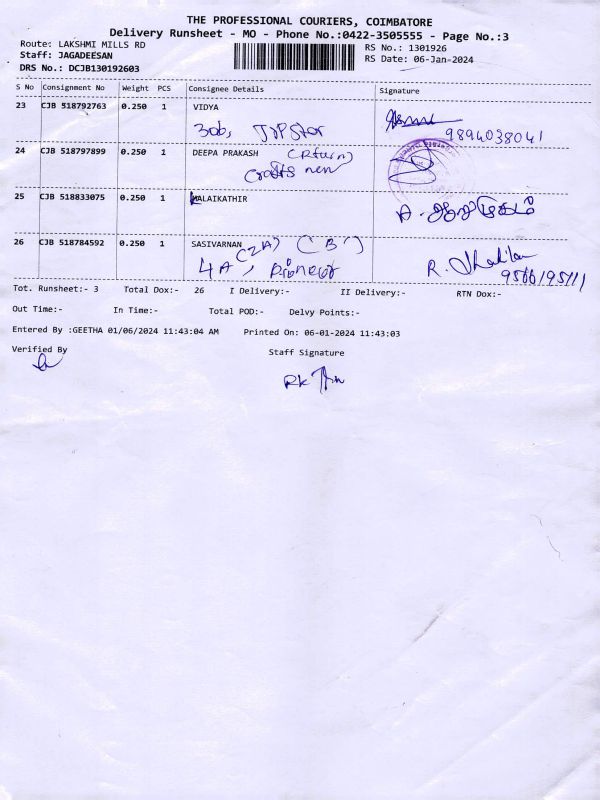 THE PROFESSIONAL COURIERS, COIMBATORE
Delivery Runsheet - MO - Phone No.:0422-3505555 - Page No.:3
Route: LAKSHMI MILLS RD
RS No.: 1301926
Staff: JAGADEESAN
RS Date: 06-Jan-2024
DRS No.: DCJB130192603
S No Consignment No Weight PCS Consignee Details Signature
23 CJB 518792763 0.250 1 VIDYA
9894038041
24 CJB 518797899 0.250 1 DEEPA PRAKASH (Return)
Crafts new
25 CJB 518833075 0.250 1 MALAIKATHIR
26 CJB 518784592 0.250 1 SASIVARNAN (2A) ('B')
4A, pioneer R.
9566195111
Tot. Runsheet:- 3 Total Dox:- 26 I Delivery:- II Delivery:- RTN Dox:-
Out Time:- In Time:- Total POD:- Delvy Points:-
Entered By :GEETHA 01/06/2024 11:43:04 AM Printed On: 06-01-2024 11:43:03
Verified By Staff Signature